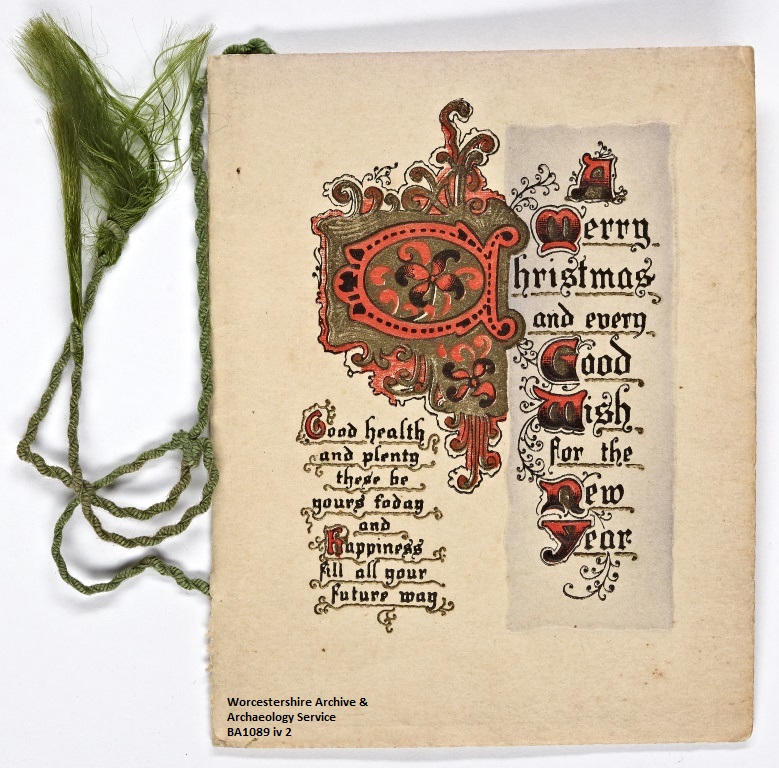 A
Merry
Christmas
and every
Good
Wish
for the
New
Year
Good health
and plenty
these be
yours today
and
Happiness
fill all your
future way
Worcestershire Archive &
Archaeology Service
BA1089 iv 2